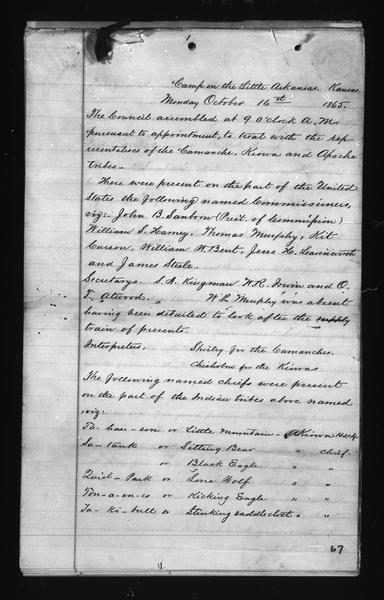 Camp on the Little Arkansas. Kansas
Monday October 16th 1865.
The Council assembled at 9 O'clock A. M.
pursuant to appointment, to treat with the rep-
resentatives of the Camanche, Kiowa and Apache
tribes-
There were present on the part of the United
States the following named Commissioners,
viz:- John B. Sanborn (Preit. of Commission)
William S. Harney, Thomas Murphy, Kit
Carson, William W. Bent, Jesse H. Leavenworth
and James Steele.
Secretarys. S. A. Kingman W. R. Irwin and O.
T. Atwood. W L Murphy was absent
having been detailed to look after the supply
train of presents.
Interpreters. Shirley for the Camanches.
Chisholm for the Kiowas
The following named chiefs were present
on the part of the Indian tribes above named
viz:
Ta- hau- son or Little Mountain- Kiowa Head
Sa- tank or Sitting Bear " chief.
or Black Eagle " "
Quiel- Park or Lone Wolf " "
Ton- a- en- co or Kicking Eagle " "
Ta- ki- bull or Stinking saddle cloth " "
67